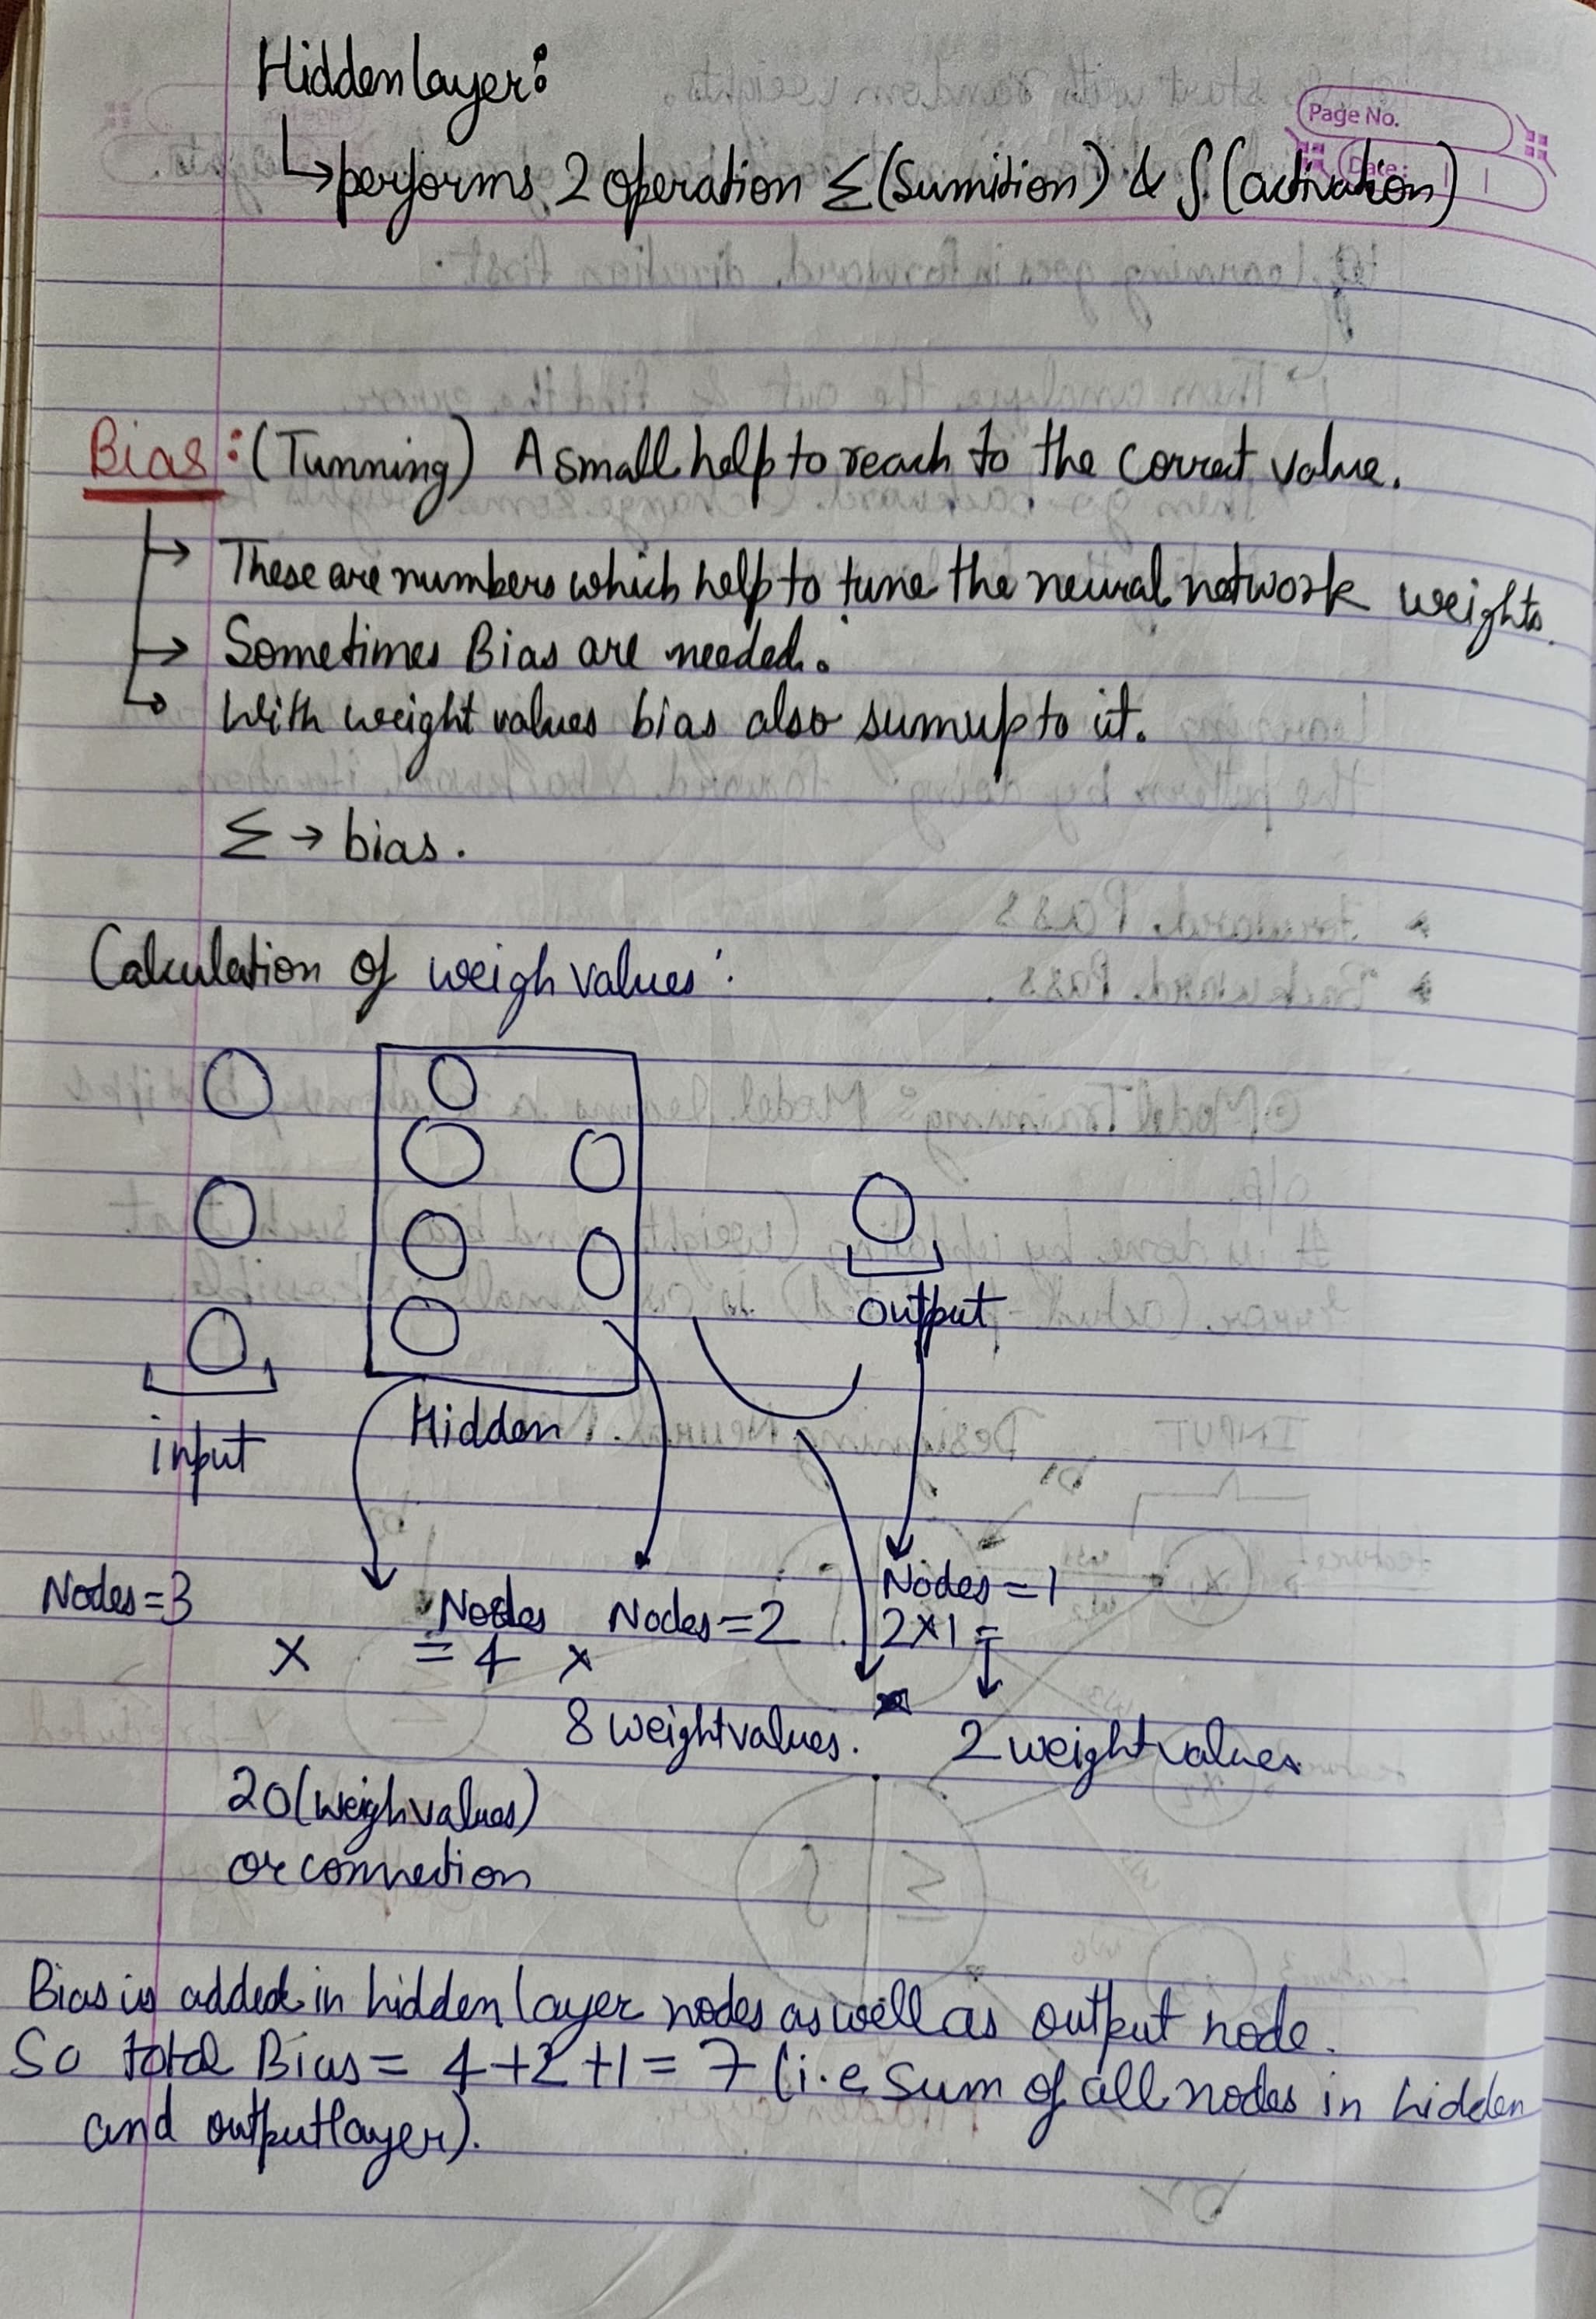 Hidden layer:
Page No.
Date:
↳ performs 2 operation Σ (Sumition) & ∫ (activation)
Bias : (Tunning) A small help to reach to the correct value.
→ These are numbers which help to tune the neural network weights.
→ Sometimes Bias are needed.
↳ With weight values bias also sumup to it.
Σ → bias.
Calculation of weigh values :
output
Hidden
input
Nodes = 3
Nodes = 1
Nodes Nodes = 2
2 × 1 =
× = 4 ×
8 weight values.
2 weight values
20 (weigh values)
or connection
Bias is added in hidden layer nodes as well as output node.
So total Bias = 4 + 2 + 1 = 7 (i.e sum of all nodes in hidden
and output layer).